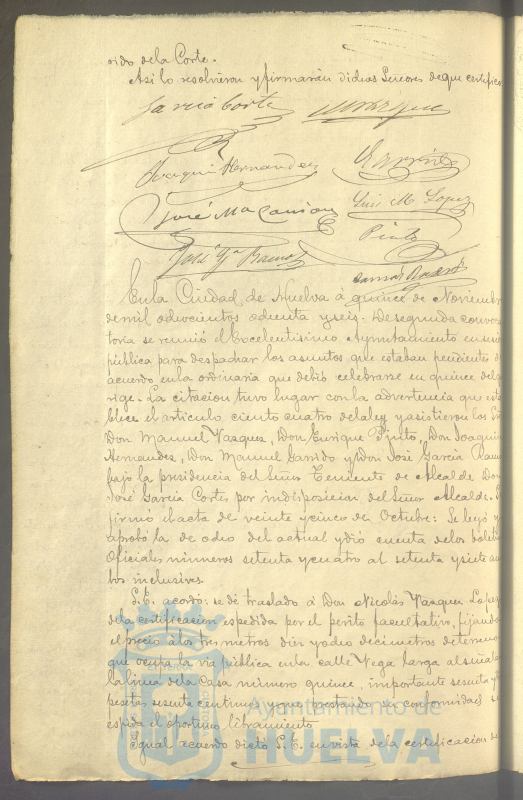 oido dela Corte.
Asi lo resolvieron y firmarán dichos Señores de que certifico
Garcia Cortés Vazquez
Joaquin Hernandez Garrido
José Ma Luis M Lopez
Pinto
José Ga Ramos
En la Ciudad de Huelva á quince de Noviembre
de mil ochocientos ochenta y seis. De segunda convoca
toria se reunió el Excelentisimo Ayuntamiento en sesion
pública para despachar los asuntos que estaban pendientes de
acuerdo en la ordinaria que debió celebrarse en quince del que
rige. La citacion tuvo lugar con la advertencia que esta
blece el articulo ciento cuatro de la ley y asistieron los Sres
Don Manuel Vazquez, Don Enrique Pinto, Don Joaquin
Hernandez, Don Manuel Garrido y Don José Garcia Ramos
bajo la presidencia del Señor Teniente de Alcalde Don
José Garcia Cortés por indisposicion del Señor Alcalde. Se
firmó el acta de veinte y cinco de Octubre: Se leyó y
aprobó la de ocho del actual y dió cuenta de los boletines
Oficiales números setenta y cuatro al setenta y siete am
bos inclusives.
S.E. acordó: se dé traslado á Don Nicolás Vazquez Lopez
dela certificacion espedida por el perito facultativo, fijando
el precio á los tres metros diez y ocho decimetros de terreno
que ocupa la via pública en la calle Vega larga al señalar
la linea dela Casa número quince, importante sesenta y
pesetas sesenta centimos y que prestando su conformidad se
espida el oportuno libramiento
Igual acuerdo dictó S.E. en vista dela certificacion de
Ayuntamiento de
HUELVA